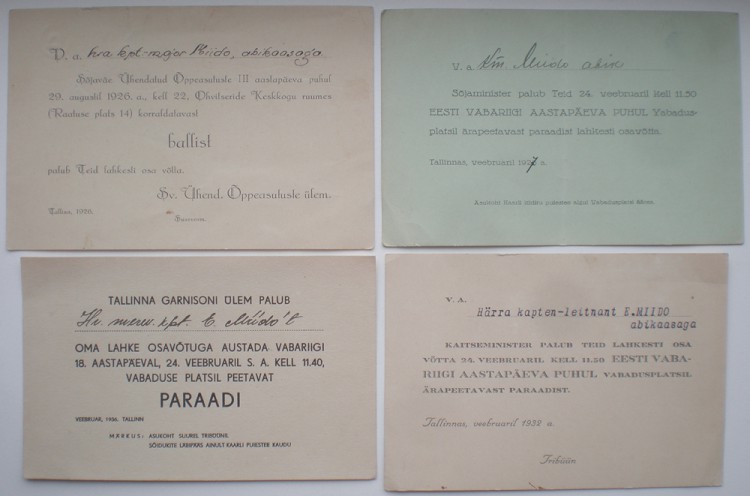 V. a. hra kpt.-major Miido, abikaasaga
Sõjaväe Ühendatud Õppeasutuste III aastapäeva puhul
29. augustil 1926. a., kell 22, Ohvitseride Keskkogu ruumes
(Raatuse plats 14) korraldatavast
ballist
palub Teid lahkesti osa võtta.
Sv. Ühend. Õppeasutuste ülem.
Tallinn, 1926.
V. a. Km. Miido abik
Sõjaminister palub Teid 24. veebruaril kell 11.50
EESTI VABARIIGI AASTAPÄEVA PUHUL Vabadus-
platsil ärapeetavast paraadist lahkesti osavõtta.
Tallinnas, veebruaril 1927 a.
TALLINNA GARNISONI ÜLEM PALUB
Hr. merev. kpt. E. Miido't
OMA LAHKE OSAVÕTUGA AUSTADA VABARIIGI
18. AASTAPÄEVAL, 24. VEEBRUARIL S. A. KELL 11.40,
VABADUSE PLATSIL PEETAVAT
PARAADI
VEEBRUAR, 1936. TALLINN
MÄRKUS: ASUKOHT SUUREL TRIBÜÜNIL
SÕIDUKITE LÄBIPÄÄS AINULT KAARLI PUIESTEE KAUDU
V. A.
Härra kapten-leitnant E.MIIDO
abikaasaga
KAITSEMINISTER PALUB TEID LAHKESTI OSA
VÕTTA 24. VEEBRUARIL KELL 11.50 EESTI VABA-
RIIGI AASTAPÄEVA PUHUL VABADUSPLATSIL
ÄRAPEETAVAST PARAADIST.
Tallinnas, veebruaril 1932 a.
Tribüün